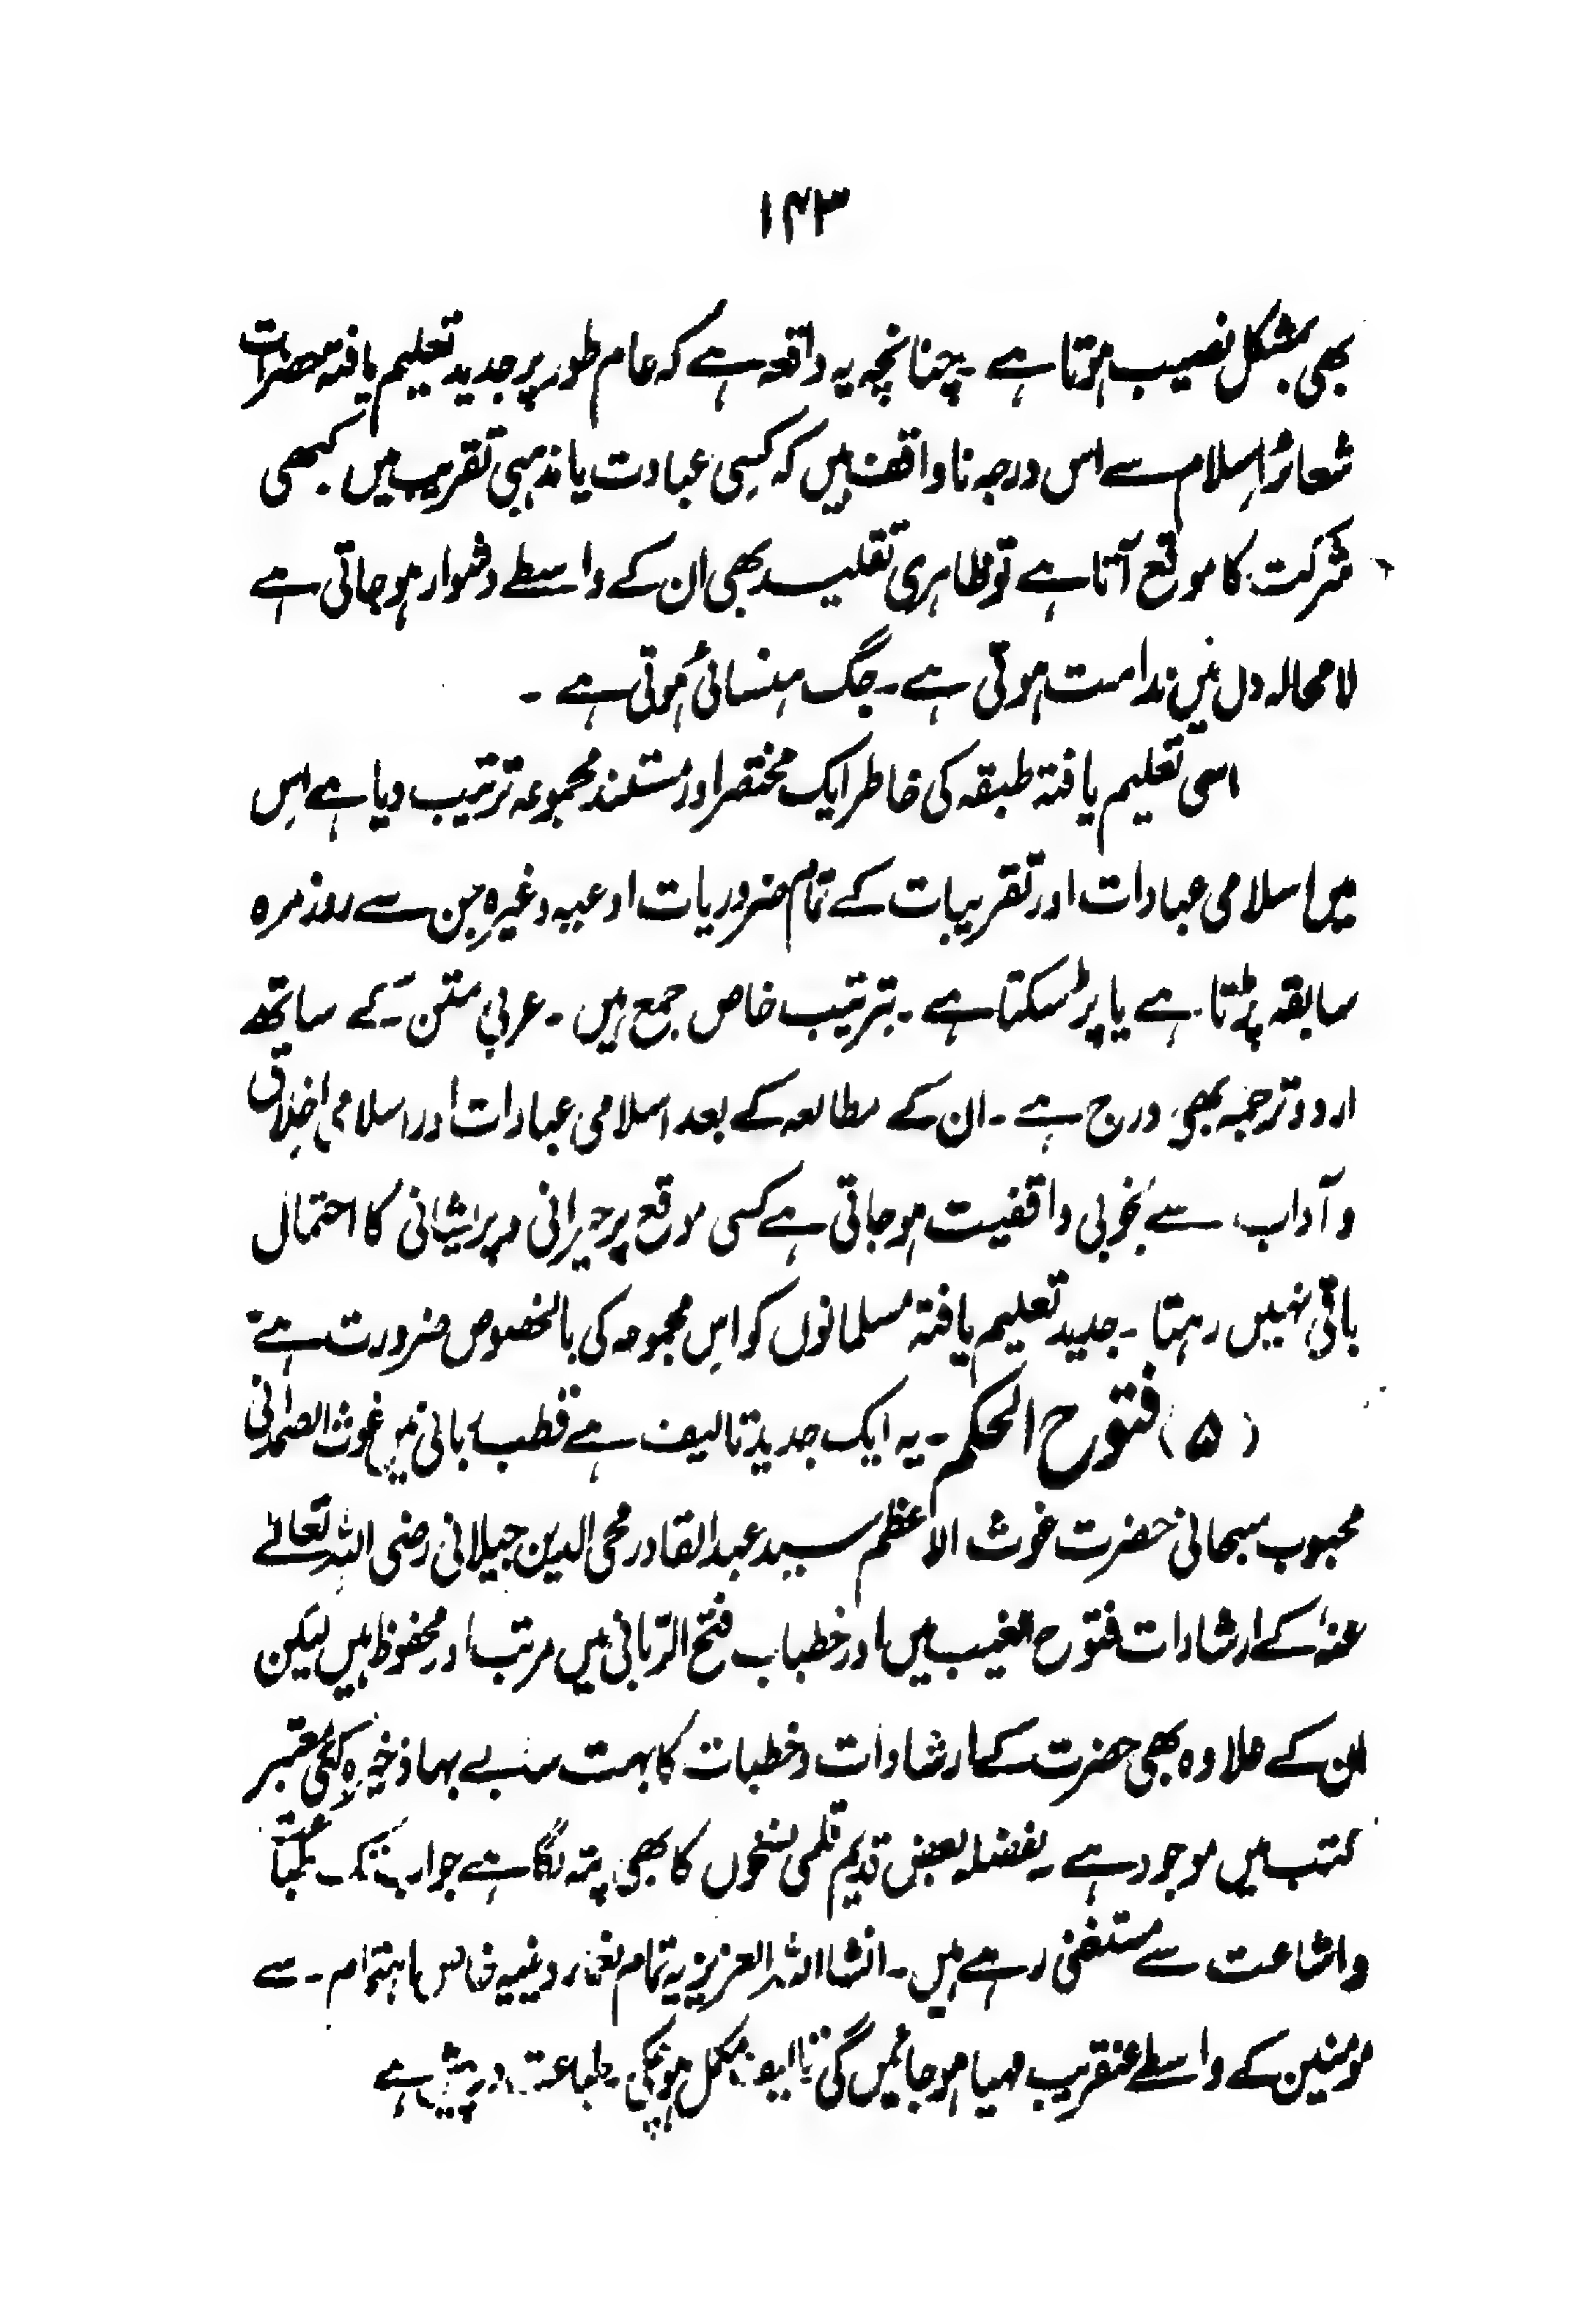 ۱۴۳
بھی بمشکل نصیب ہوتا ہے ۔ چنانچہ یہ واقعہ ہے کہ عام طور پر جدید تعلیم یافتہ حضرات
شعائر اسلام سے اس درجہ ناواقف ہیں کہ کسی عبادت یا مذہبی تقریب میں کبھی
شرکت کا موقع آتا ہے تو ظاہری تقلید بھی ان کے واسطے دشوار ہوجاتی ہے
لامحالہ دل میں ندامت ہوتی ہے ۔ جگ ہنسائی ہوتی ہے ۔
اسی تعلیم یافتہ طبقہ کی خاطر ایک مختصر اور مستند مجموعہ ترتیب دیا ہے اس
میں اسلامی عبادات اور تقریبات کے تمام ضروریات ادعیہ وغیرہ جن سے روزمرہ
سابقہ پڑتا ہے یا پڑسکتا ہے ۔ بترتیب خاص جمع ہیں ۔ عربی متن کے ساتھ
اردو ترجمہ بھی درج ہے ۔ ان کے مطالعہ کے بعد اسلامی عبادات اور اسلامی اخلاق
و آداب سے بخوبی واقفیت ہوجاتی ہے کسی موقع پر حیرانی و پریشانی کا احتمال
باقی نہیں رہتا ۔ جدید تعلیم یافتہ مسلمانوں کو اس مجموعہ کی بالخصوص ضرورت ہے
(۵) فتوح الحکم ۔ یہ ایک جدید تالیف ہے قطب ربانی غوث الصمدانی
محبوب سبحانی حضرت غوث الاعظم سید عبدالقادر محی الدین جیلانی رضی اللہ تعالےٰ
عنہٗ کے ارشادات فتوح الغیب میں اور خطبات فتح الربانی میں مرتب اور محفوظ ہیں لیکن
ان کے علاوہ بھی حضرت کے ارشادات و خطبات کا بہت سا بے بہا ذخیرہ کئی معتبر
کتب میں موجود ہے ۔ بفضلہ بعض قدیم قلمی نسخوں کا بھی پتہ لگا ہے جو اب تک طباعت
و اشاعت سے مستغنی رہے ہیں ۔ انشااللہ العزیز یہ تمام دینیہ خاص اہتمام ۔ سے
مومنین کے واسطے عنقریب مہیا ہوجائیں گی تالیف مکمل ہوچکی ۔ طباعت درپیش ہے